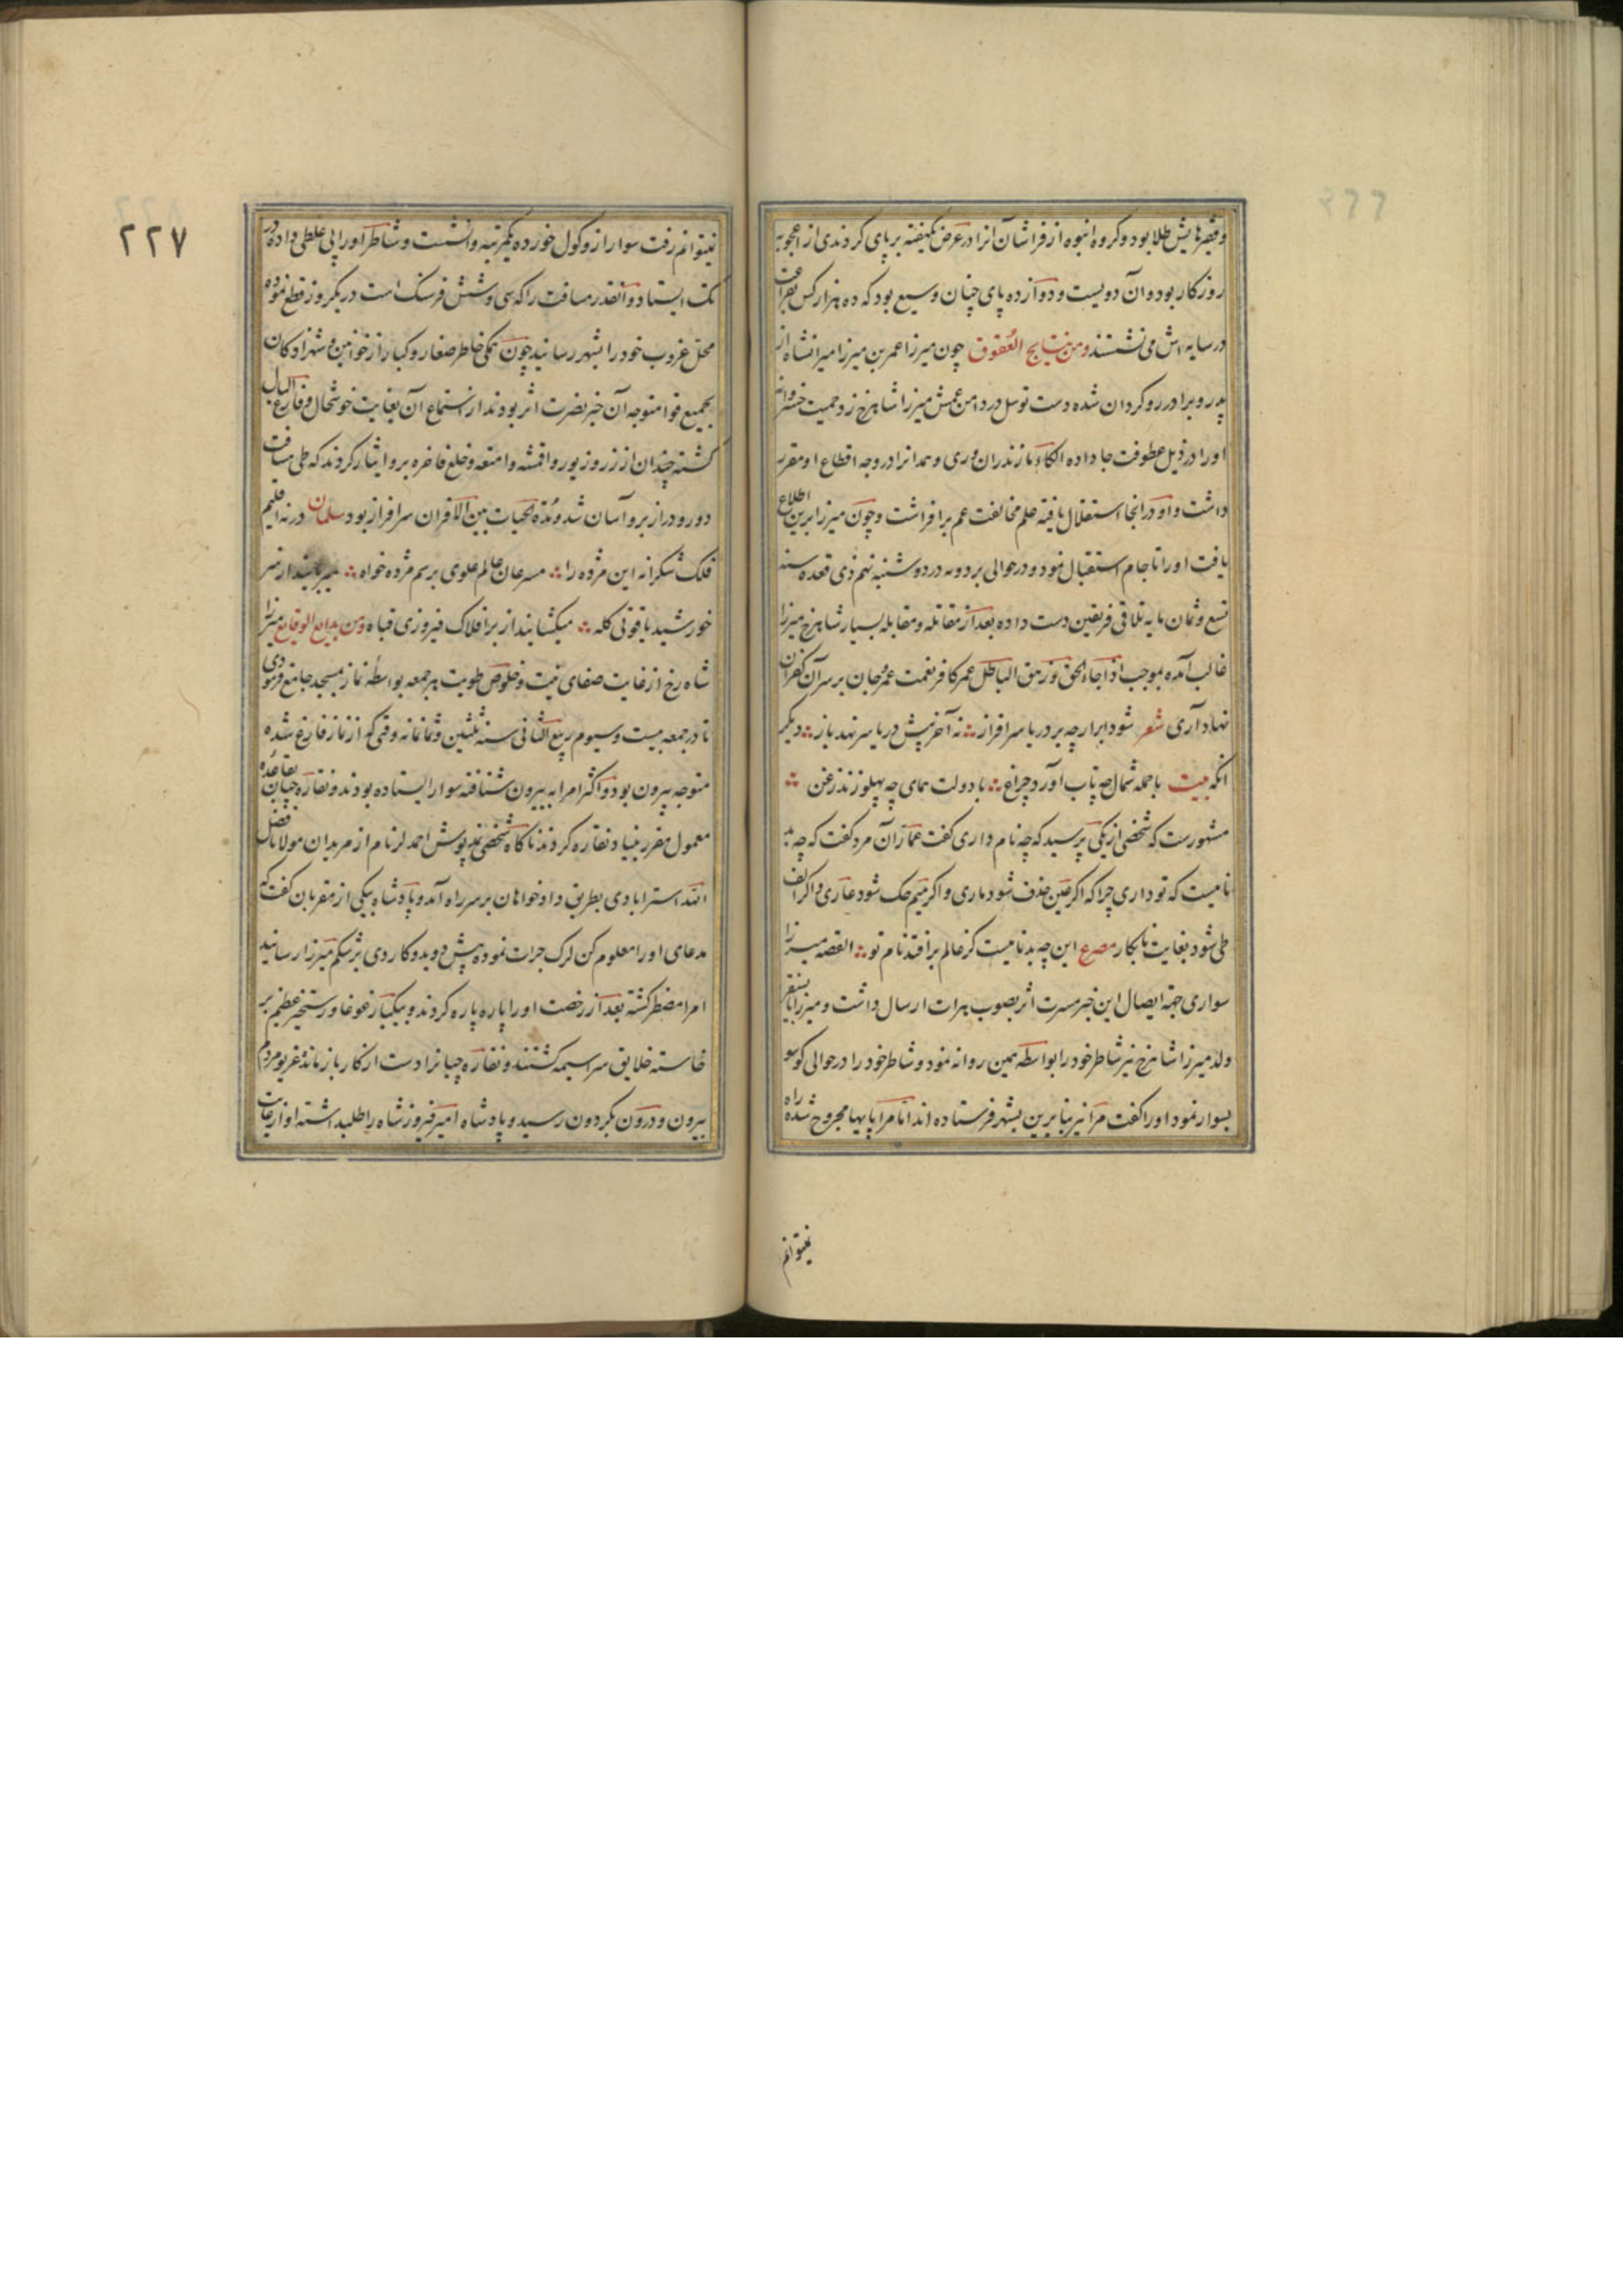 وقبهایش طلا بود و کروه انبوه از فراشان آنرا در عرض یکهفته بر پای کردندی از اعجوبه
روزکار بود و آن دویست و دوازده پای چنان وسیع بود که ده هزار کس بفراغت
در سایه اش می نشستند ومن نتایج العقوق چون میرزا عمر بن میرزا میرانشاه از
پدر و برادر رو کردان شده دست توسل در دامن عمش میرزا شاهرخ زد حمیت خسروانه
اورا در ذیل عطوفت جا داده الکاء مازندران و ری و همدانرا در وجه اقطاع او مقرر
داشت و او در انجا استقلال یافته علم مخالفت عم برافراشت و چون میرزا برین اطلاع
یافت اورا تا جام استقبال نمود و در حوالی بردویه در دوشنبه نهم ذی قعده سنه
تسع و ثمان مایه تلاقی فریقین دست داده بعد از مقاتله و مقابله بسیار شاهرخ میرزا
غالب آمده بموجب اذا جاء الحق و زهق الباطل عمر کافر نعمت عمر و جان بر سر آن کفران
نهاد آری شعر شود ابر ارچه بر دریا سرافراز نه آخر پیش دریا سر نهد باز دیکر
انکه بیت با حمله شمال چه تاب آورد چراغ با دولت همای چه پهلو زند زغن
مشهورست که شخصی از یکی پرسید که چه نام داری کفت عمار آن مرد کفت که چه بد
نامیست که تو داری چرا که اکر عین حذف شود ماری و اکر میم حک شود عاری و اکر الف
طی شود بغایت نابکار مصرع این چه بد نامیست کز عالم برافتد نام تو القصه میرزا
سواری جهة ایصال این خبر مسرت اثر بصوب هرات ارسال داشت و میرزا بایسنقر
ولد میرزا شاهرخ نیز شاطر خود را بواسطه همین روانه نمود و شاطر خود را در حوالی کوسو
بسوار نمود اورا کفت مرا نیز بنابرین بشهر فرستاده اند اما مرا پایها مجروح شده راه
نیتوانم
٢٢٧
نیتوانم رفت سوار از و کول خورده یکمرتبه وا نشست و شاطر اورا پی غلطی داده در
تک ایستاد و آنقدر مسافت را که سی و شش فرسنک است در یکروز قطع نموده
محل غروب خود را بشهر رسانید چون همکی خاطر صغار و کبار از خوانین و شهزادکان
بجمیع قوا متوجه آن خبر نصرت اثر بودند از استماع آن بغایت خوشحال و فارغ البال
کشته چندان از زر و زیور و اقمشه و امتعه و خلع فاخره برو ایثار کردند که طی مسافت
دور و دراز برو آسان شد و مدة الحیات بین الاقران سرافراز بود سلمان در نه اقلیم
فلک شکرانه این مژده را مسرعان عالم علوی برسم مژده خواه میربایند از سر
خورشید یاقوتی کله میکشانید از بر افلاک فیروزی قباه ومن بدایع الوقایع میرزا
شاه رخ از غایت صفای نیت و خلوص طویت هر جمعه بواسطه نماز بمسجد جامع فرمودی
تا در جمعه بیست و سیوم ربیع الثانی سنه ثلثین و ثمانمانه وقتی که از نماز فارغ شده
متوجه بیرون بود و اکثر امرا به بیرون شتافته سوار ایستاده بودند و نقاره چیان بقاعده
معمول مقرر بنیاد نقاره کردند ناکاه شخصی نمد پوش احمد لر نام از مریدان مولانا فضل
الله استرابادی بطریق دادخواهان بر سر راه آمد و پادشاه بیکی از مقربان کفت که
مدعای اورا معلوم کن لرک جرات نموده پیش دوید و کاردی بر شکم میرزا رسانید
امرا مضطر کشته بعد از رخصت اورا پاره پاره کردند و بیکبار غوغا و رستخیز عظیم بر
خاسته خلایق سراسیمه کشتند و نقاره چیانرا دست از کار باز مانده غریو مردم
بیرون و درون بکردون رسید و پادشاه امیر فیروزشاه را طلبداشته او از غایت